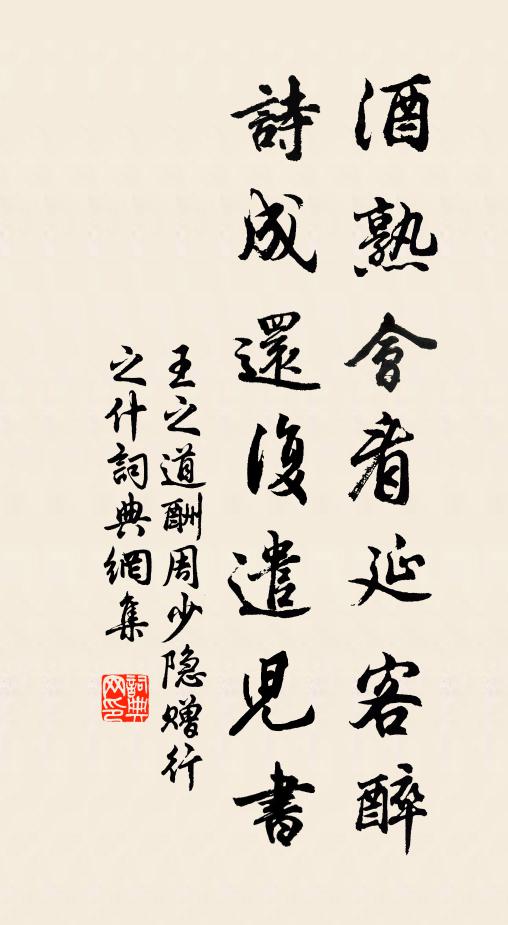 酒熟會看延客醉
詩成還復遣兒書
王之道酬周少隐贈行
之什詞典網集
詞典
网印